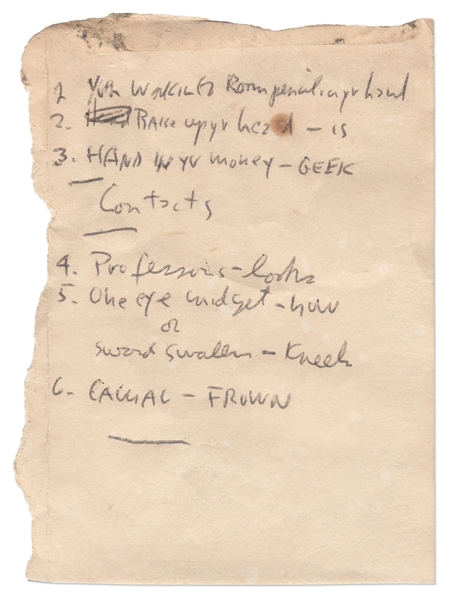 1 You WALK INTO Room pencil in yr hand
2. RAise up yr head – is
3. HAND IN YR money – GEEK
Contacts
4. Professors – looks
5. One eye midget – now
or
sword swallers – Kneels
6. – FROWN